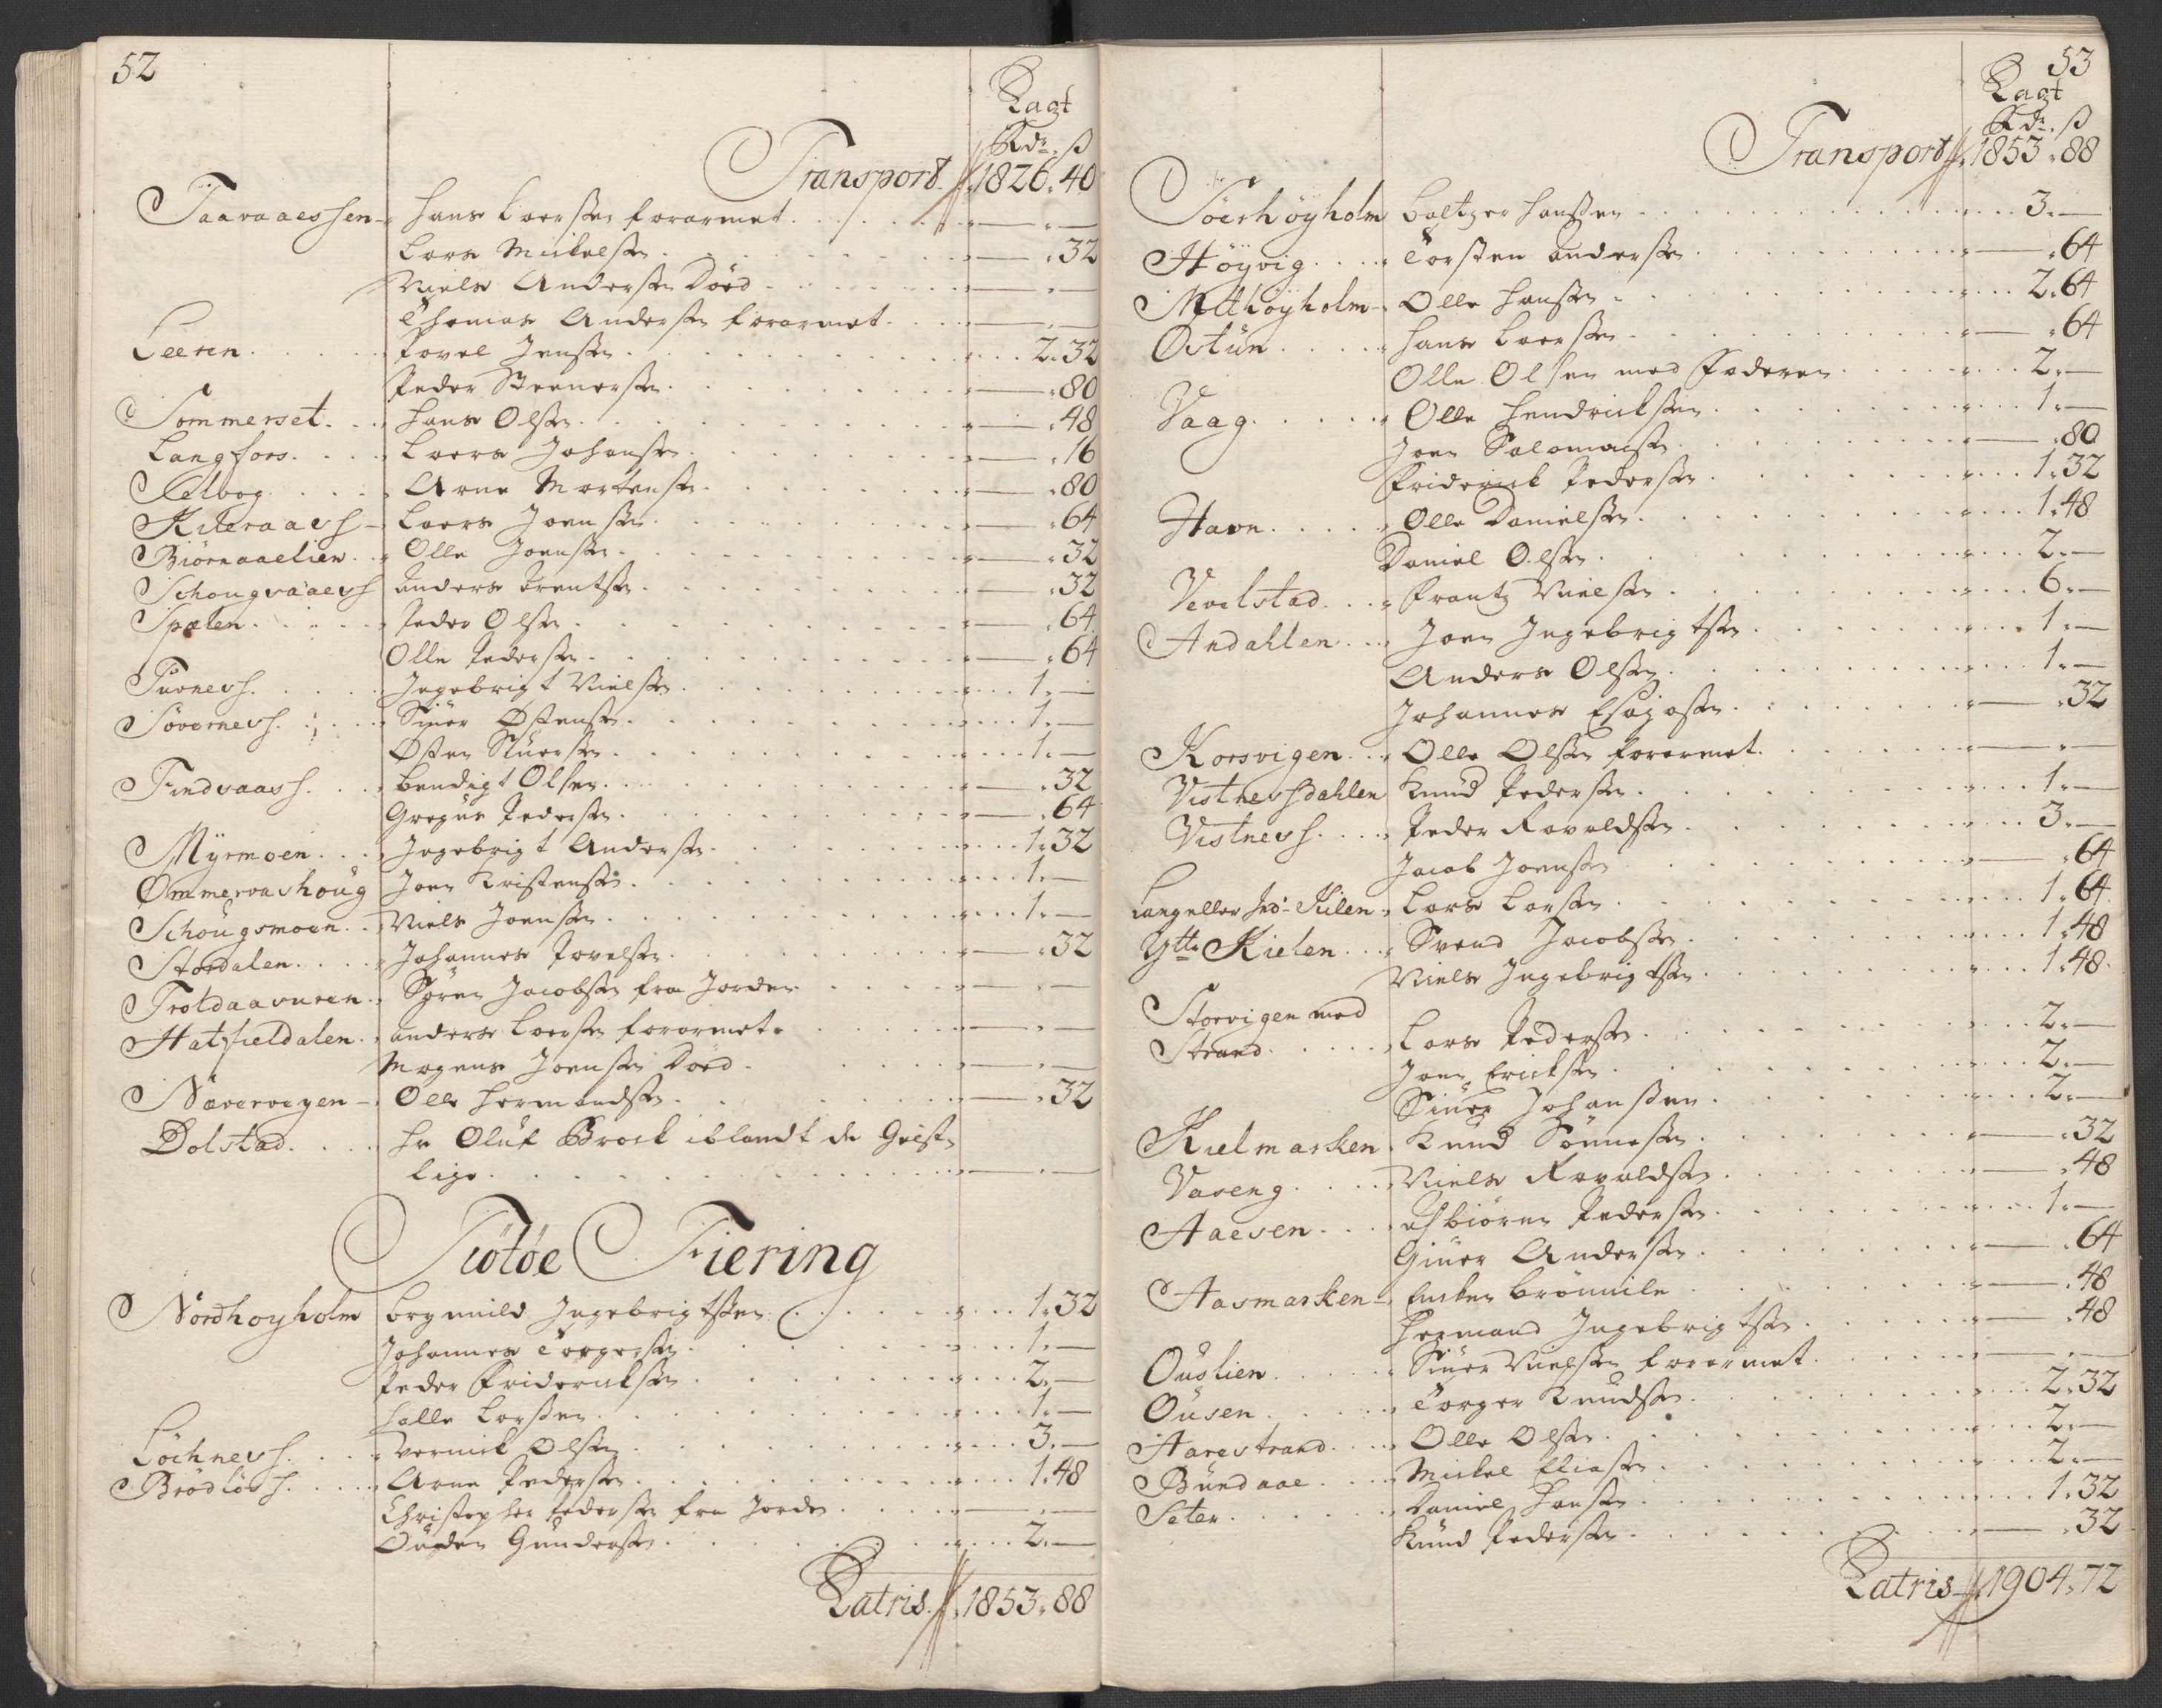 52
Lagt
Rdr. ß
Transport 1826. 40
Taavaaessen Hans Laerssen forarmet — . —
Lars Mickelsen — . 32
Niels Andersen Död — . —
Thomas Andersen forarmet — . —
Leeren Povel Jensen 2. 32
Peder Steenersen — . 80
Sommerset Hans Olsen — . 48
Langfors Laers Johansen — . 16
Arne Mortensen — . 80
Laers Joensen — . 64
Biörnaaelien Olle Joensen — . 32
Anders Brentsen — . 32
Spalen Peder Olsen — . 64
Olle Pedersen — . 64
Turness Ingebrigt Nielsen 1. —
Söverness Siuer Östensen 1. —
Östen Siuersen 1. —
Findvaass Bendigt Olsen — . 32
Gregus Pedersen — . 64
Myrmoen Ingebrigt Andersen 1. 32
Ommervashoug Joen Kristensen 1. —
Schougsmoen Niels Joensen 1. —
Stordalen Johannes Povelsen — . 32
Troldaavuren Sören Jacobsen fra Jorden — . —
Hatfieldalen Anders Laersen forarmet — . —
Mogens Joensen Död — . —
Næverveyen Olle Hermandsen — . 32
Dolstad Hr Oluf Brock iblandt de Geist
lige — . —
Tiötöe Fiering
Nordhoyholm Ingebrigtsen 1. 32
Johannes Torgersen 1. —
Peder Fridericksen 2. —
Halle Larsen 1. —
Löchness Olsen 3. —
Brödlös Arne Pedersen 1. 48
Christopher Pedersen fra Jorden — . —
Ouden Gundersen 2. —
Latris 1853. 88
53
Lagt
Rdr. ß
Transport 1853. 88
Söerhöyholm Baltzer Hanssen 3. —
Höyvig Torsten Andersen — . 64
Mellhöyholm Olle Hansen 2. 64
Östün Hans Laersen — . 64
Olle Olsen med Faderen 2. —
Vaag Olle Hendricksen 1. —
Joen Salomonsen — . 80
Friderick Pedersen 1. 32
Havn Olle Danielsen 1. 48
Daniel Olsen 2. —
Vevelstad Frantz Nielsen 6. —
Andahlen Joen Ingebrigtsen 1. —
Anders Olsen 1. —
Johannes — . 32
Korsvigen Olle Olsen forarmet — . —
Vistnessdahlen Knud Pedersen 1. —
Vistness Peder Ravaldsen 3. —
Jacob Joensen — . 64
Lang eller Ind: Kilen Lars Larsen 1. 64
Ytt: Kielen Svend Jacobsen 1. 48
Niels Ingebrigtsen 1. 48
Storvigen med
Strand Lars Pedersen 2. —
Joen Ericksen 2. —
Siuer Johanssen 2. —
Kielmarken Knud Sönnesen — . 32
Vaseng Niels Ravaldsen — . 48
Aaesen Asbiören Pedersen 1. —
Giuer Andersen — . 64
Aasmarken — . 48
Hermand Ingebrigtsen — . 48
Ouslien Siuer Nielsen forarmet — . —
Ousen Torger Knudsen 2. 32
Aarestrand Olle Olsen 2. —
Bundaae Mickel Eliasen 2. —
Seter Daniel Hansen 1. 32
Knud Pedersen — . 32
Latris 1904. 72